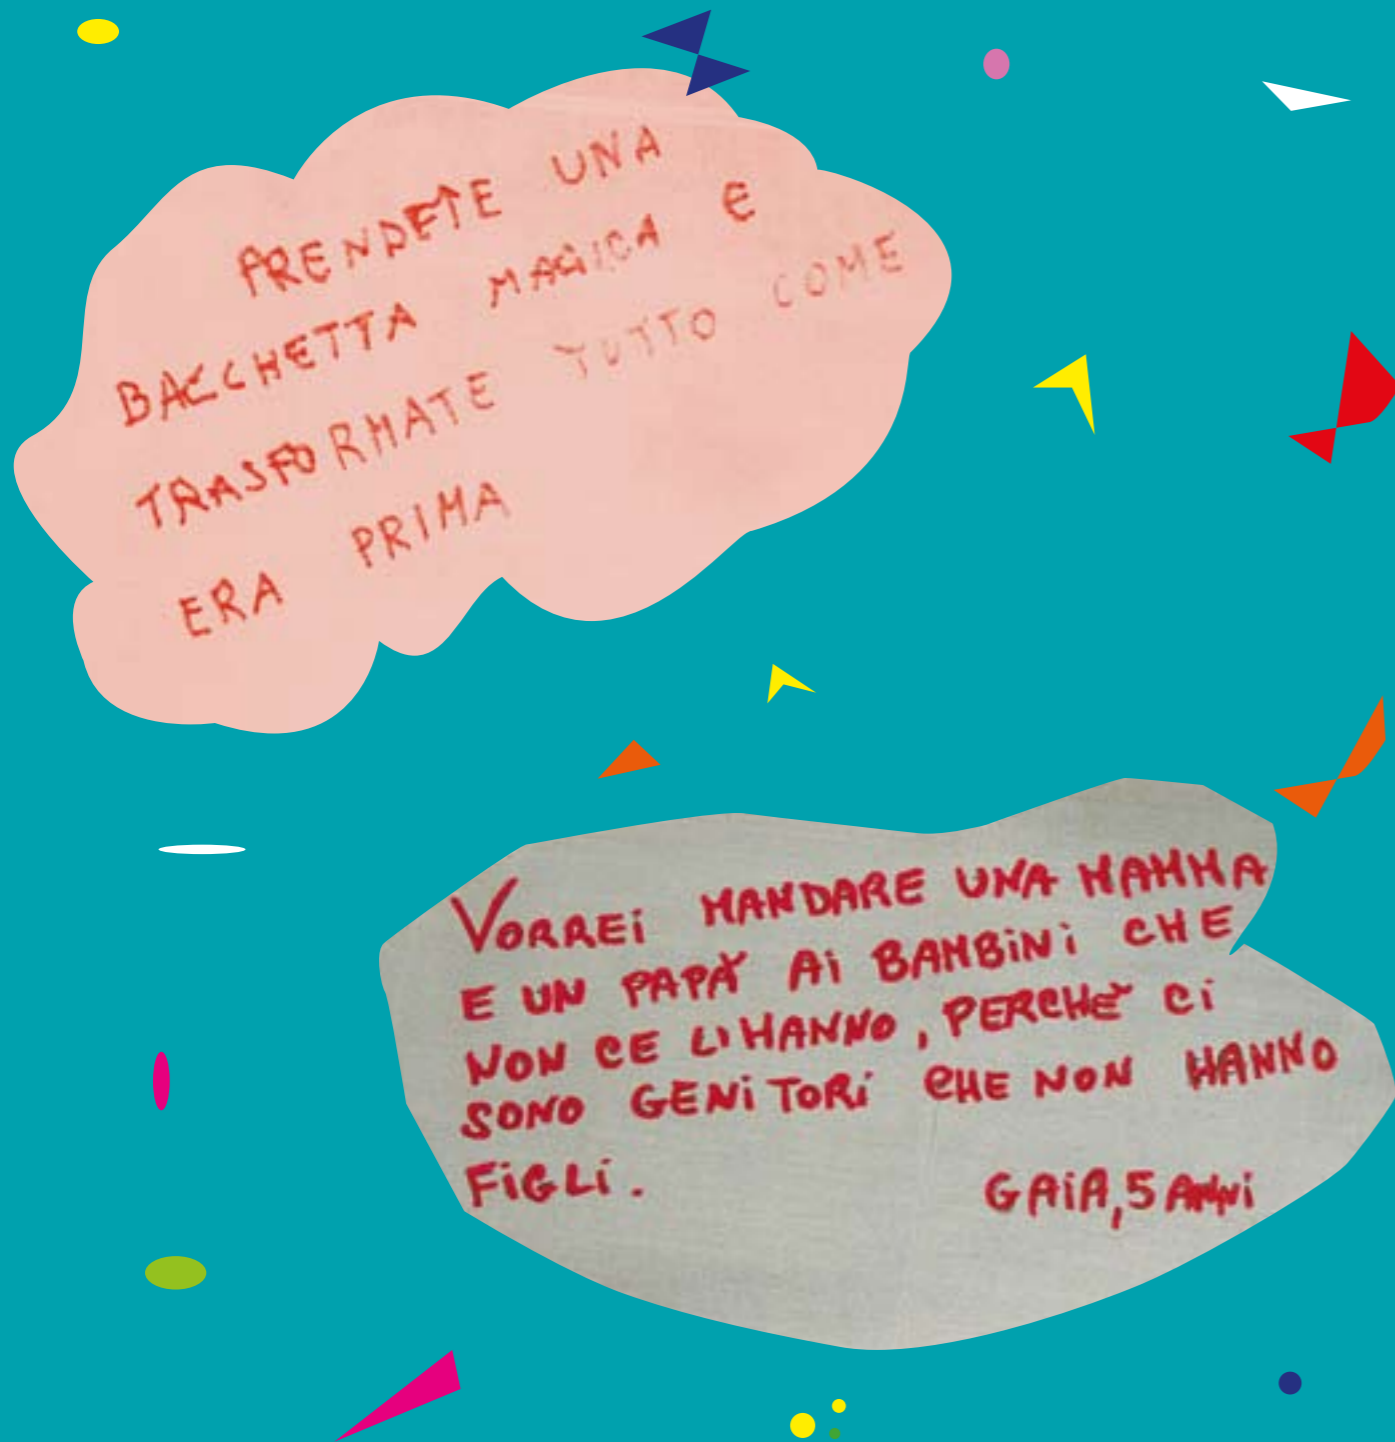 PRENDETE UNA
BACCHETTA MAGICA E
TRASFORMATE TUTTO COME
ERA PRIMA
VORREI MANDARE UNA MAMMA
E UN PAPÀ AI BAMBINI CHE
NON CE LI HANNO, PERCHÈ CI
SONO GENITORI CHE NON HANNO
FIGLI.
GAIA, 5 ANNI